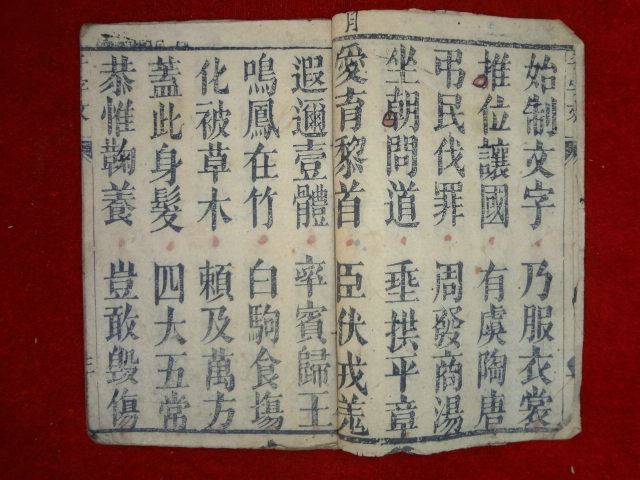 始制文字 乃服衣裳
推位讓國 有虞陶唐
弔民伐罪 周發商湯
坐朝問道 垂拱平章
愛育黎首 臣伏戎羌
遐邇壹體 率賓歸王
鳴鳳在竹 白駒食場
化被草木 賴及萬方
蓋此身髮 四大五常
恭惟鞠養 豈敢毀傷